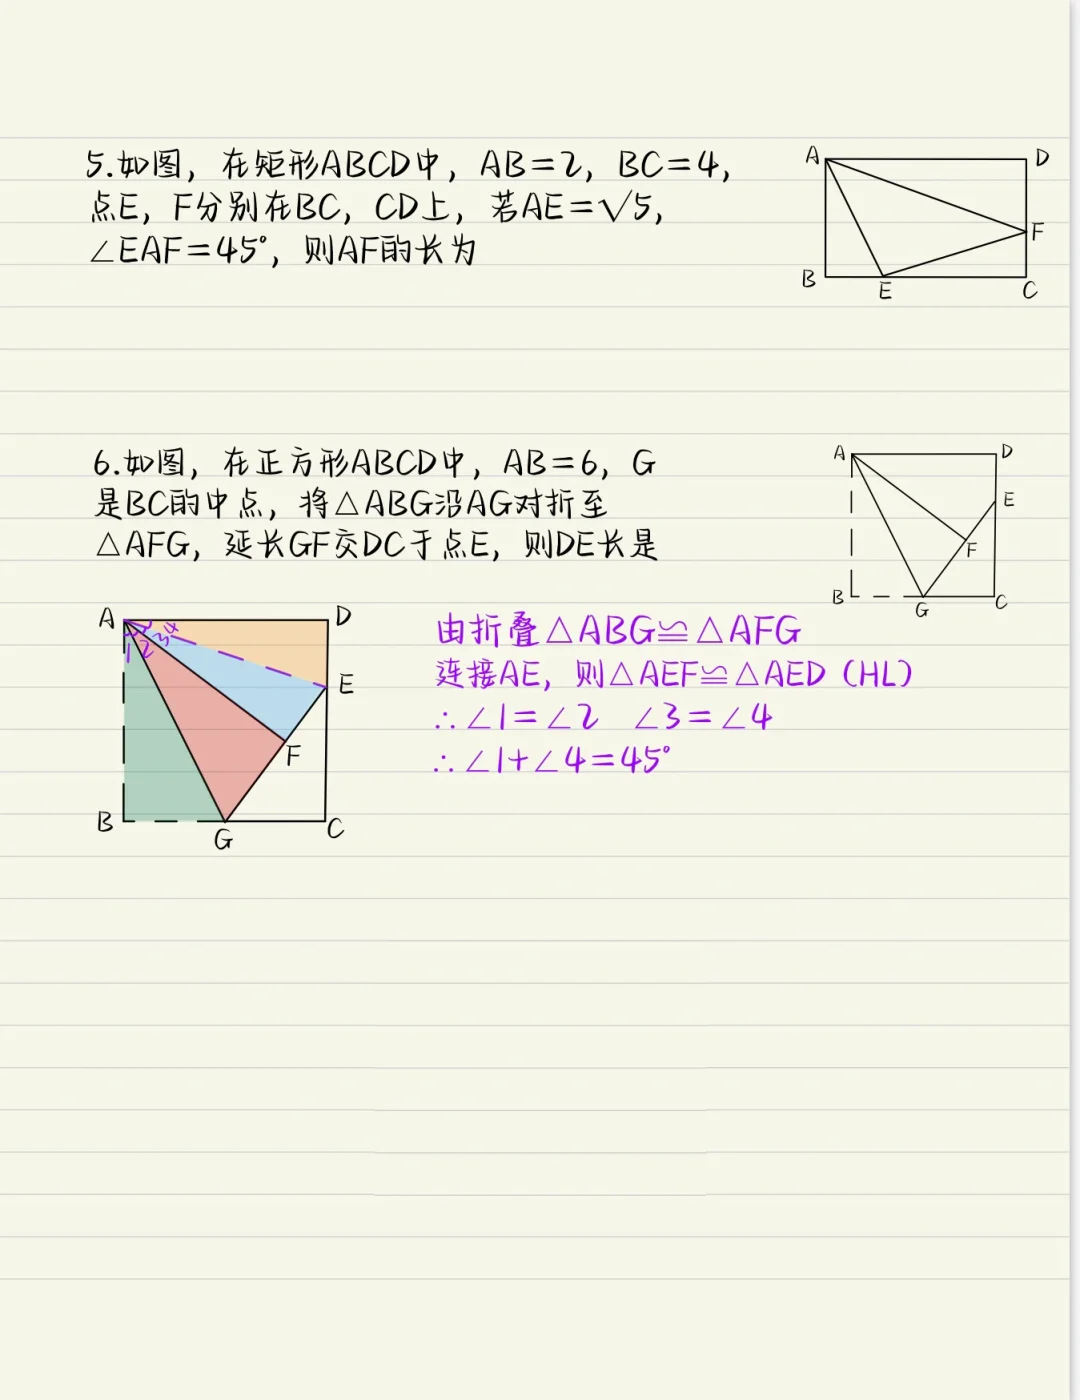 5.如图，在矩形ABCD中，AB=2，BC=4，
点E，F分别在BC，CD上，若AE=√5，
∠EAF=45°，则AF的长为
A
D
F
B
E
C
6.如图，在正方形ABCD中，AB=6，G
是BC的中点，将△ABG沿AG对折至
△AFG，延长GF交DC于点E，则DE长是
A
D
E
F
B
G
C
A
D
1
2
3
4
E
F
B
G
C
由折叠△ABG≌△AFG
连接AE，则△AEF≌△AED（HL）
∴∠1=∠2 ∠3=∠4
∴∠1+∠4=45°